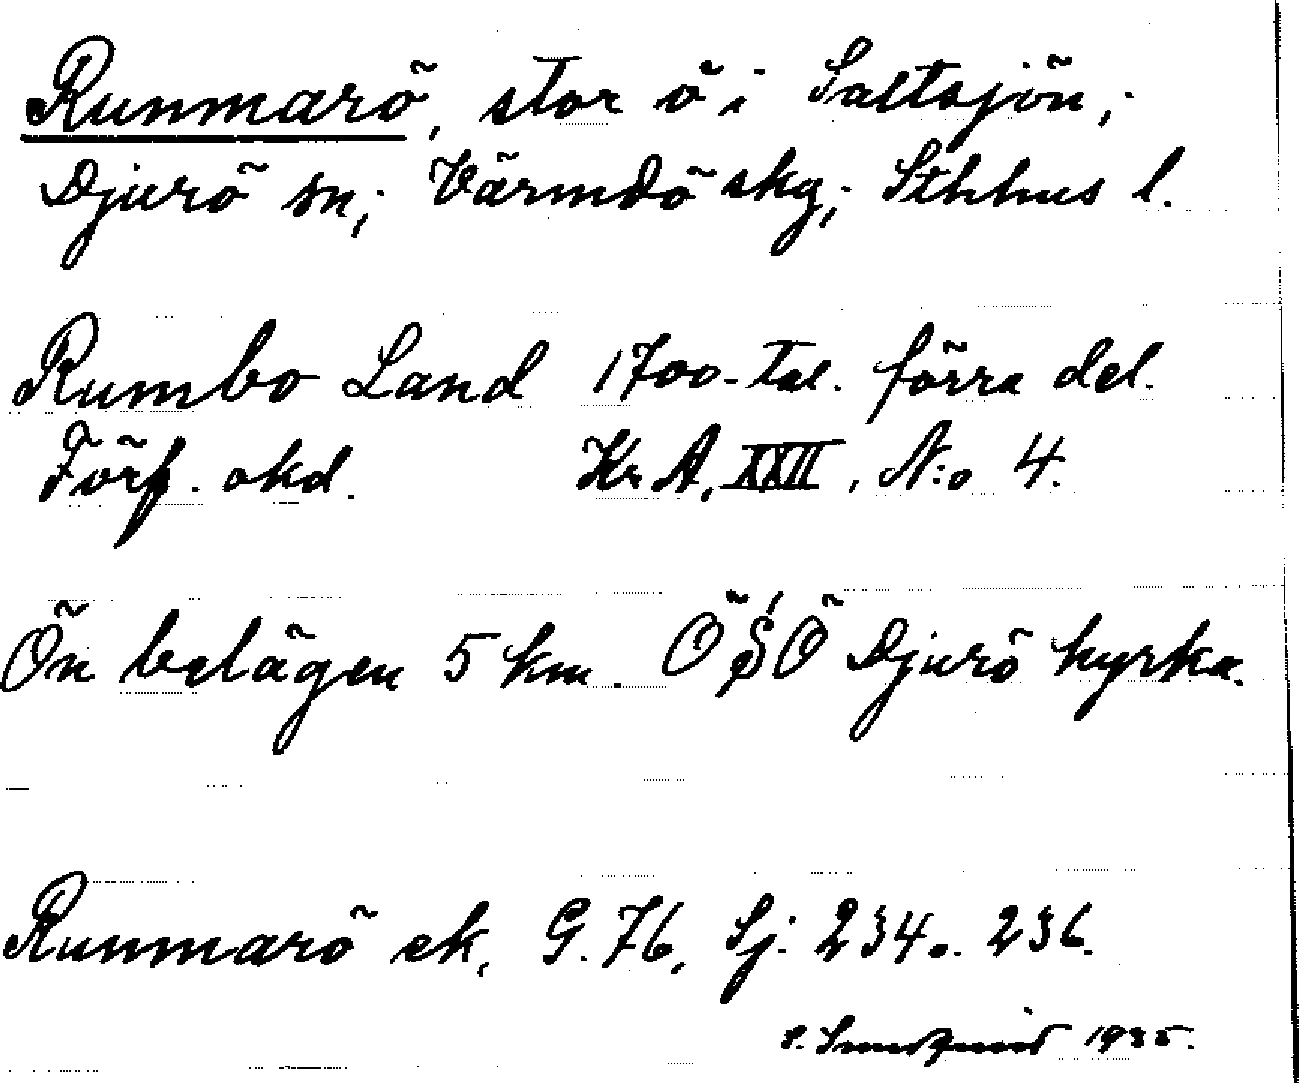 Runmarö, stor ö i Saltsjön,
Djurö sn; Värmdö skg; Sthhus l.
Rumbo Land 1700-tal. förra del.
Förf. okd. Kr A, XXII, N:o 4.
Ön belägen 5 km. ÖSÖ Djurö kyrka.
Runmarö ek. G. 76, Sj: 234 o. 236.
1935.